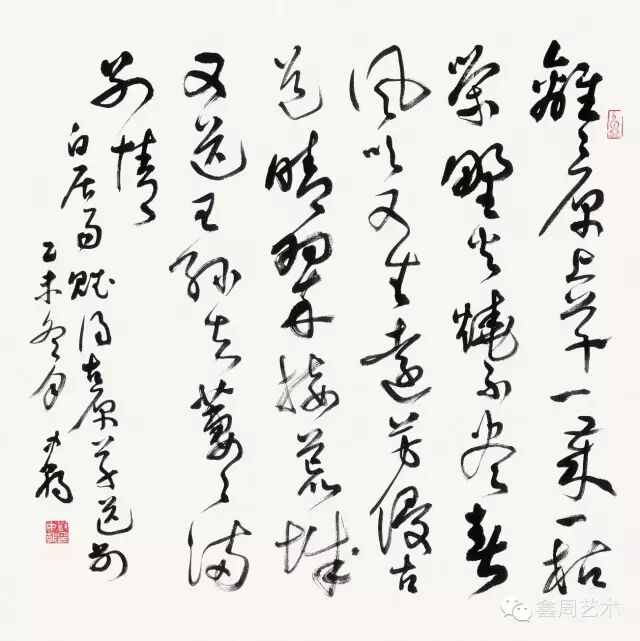 離々原上草一歲一枯
榮野火燒不盡春
風吹又生遠芳侵古
道晴翠接荒城
又送王孫去萋々滿
別情
白居易賦得古原草送別
乙未冬月
鑫周艺术